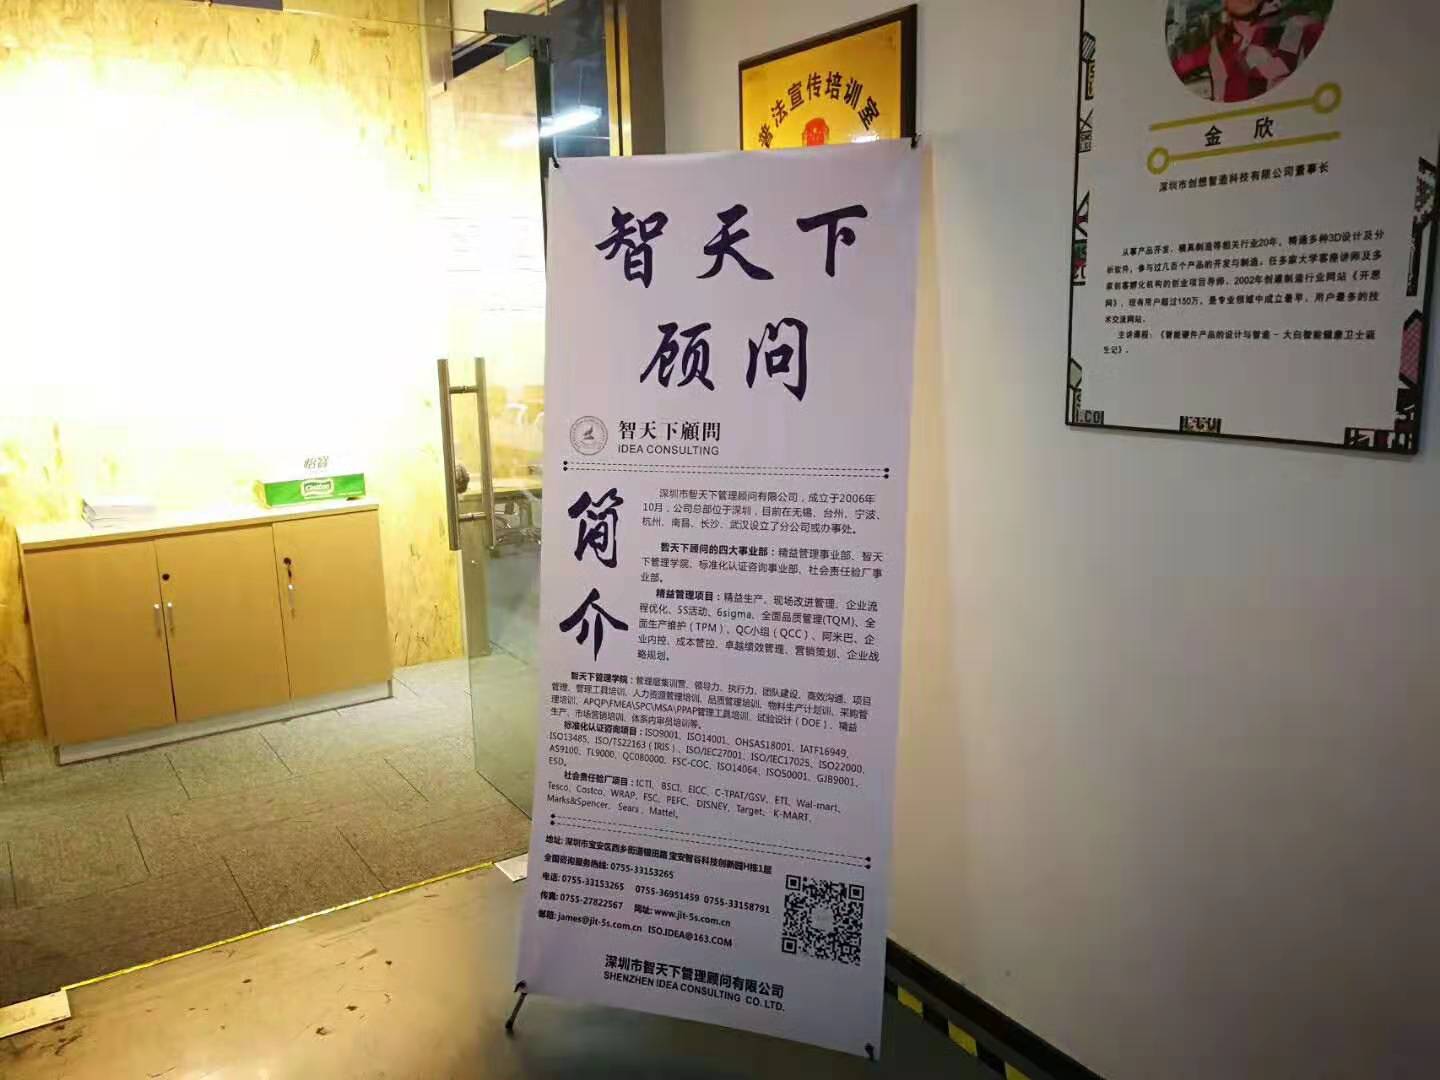 普法宣传培训室
智天下
顾问
智天下顧問
IDEA CONSULTING
简介
深圳市智天下管理顾问有限公司，成立于2006年
10月，公司总部位于深圳，目前在无锡、台州、宁波、
杭州、南昌、长沙、武汉设立了分公司或办事处。
智天下顾问的四大事业部：精益管理事业部、智天
下管理学院、标准化认证咨询事业部、社会责任验厂事
业部。
精益管理项目：精益生产、现场改进管理、企业流
程优化、5S活动、6sigma、全面品质管理(TQM)、全
面生产维护（TPM）、QC小组（QCC）、阿米巴、企
业内控、成本管控、卓越绩效管理、营销策划、企业战
略规划。
智天下管理学院：管理层集训营、领导力、执行力、团队建设、高效沟通、项目
管理、管理工具培训、人力资源管理培训、品质管理培训、物料生产计划训、采购管
理培训、APQP\FMEA\SPC\MSA\PPAP管理工具培训、试验设计（DOE）、精益
生产、市场营销培训、体系内审员培训等。
标准化认证咨询项目：ISO9001、ISO14001、OHSAS18001、IATF16949、
ISO13485、ISO/TS22163（IRIS）、ISO/IEC27001、ISO/IEC17025、ISO22000、
AS9100、TL9000、QC080000、FSC-COC、ISO14064、ISO50001、GJB9001、
ESD。
社会责任验厂项目：ICTI、BSCI、EICC、C-TPAT/GSV、ETI、Wal-mart、
Tesco、Costco、WRAP、FSC、PEFC、DISNEY、Target、K-MART、
Marks&Spencer、Sears、Mattel。
地址: 深圳市宝安区西乡街道银田路 宝安智谷科技创新园H栋1层
全国咨询服务热线: 0755-33153265
电话: 0755-33153265 0755-36951459 0755-33158791
传真: 0755-27822567 网址: www.jit-5s.com.cn
邮箱: james@jit-5s.com.cn ISO.IDEA@163.COM
深圳市智天下管理顾问有限公司
SHENZHEN IDEA CONSULTING CO. LTD.
金欣
深圳市创想智造科技有限公司董事长
从事产品开发、模具制造等相关行业20年，精通多种3D设计及分
析软件，参与过几百个产品的开发与制造。任多家大学客座讲师及多
家创客孵化机构的创业项目导师。2002年创建制造行业网站《开思
网》，现有用户超过150万，是专业领域中成立最早、用户最多的技
术交流网站。
主讲课程：《智能硬件产品的设计与智造－大白智能健康卫士诞
生记》。
怡宝